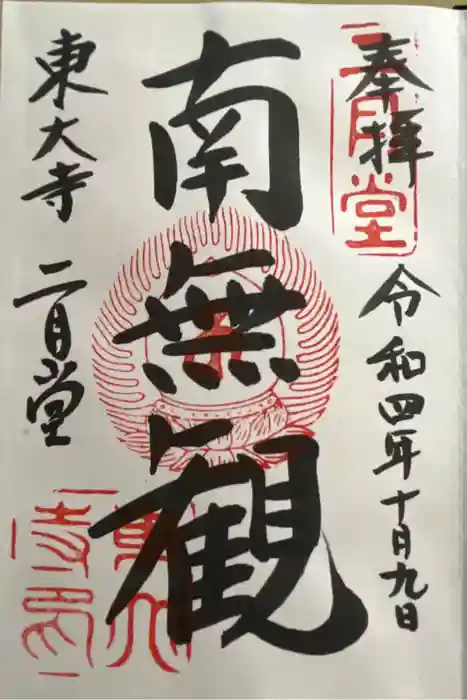 奉拝
二月堂
令和四年十月九日
南無観
東大寺
二月堂